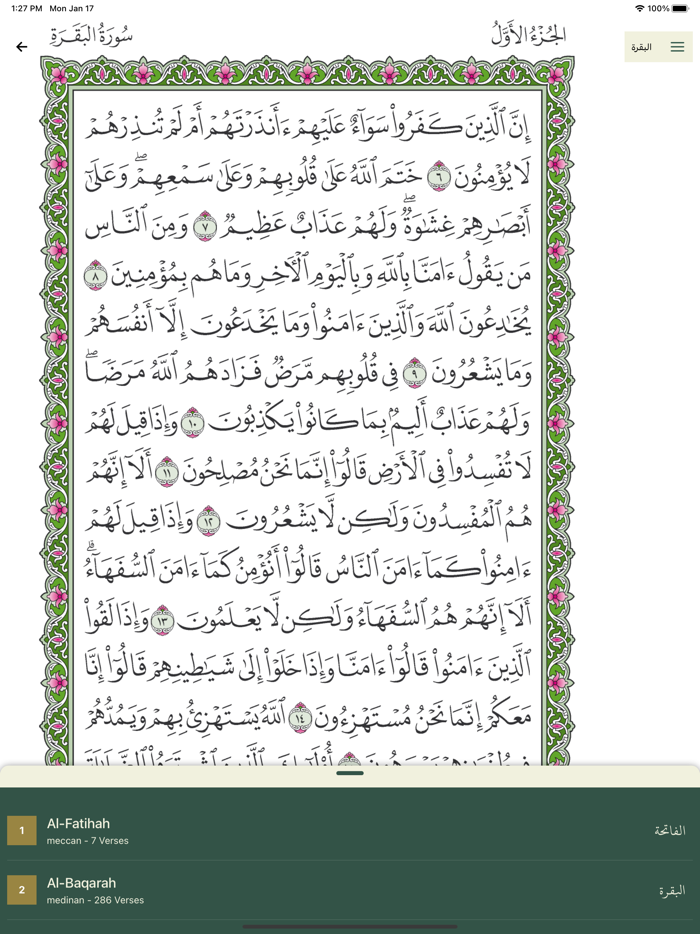 1:27 PM Mon Jan 17
100%
سُورَةُ البَقَرَةِ
الجُزْءُ الأَوَّلُ
البقرة
إِنَّ ٱلَّذِينَ كَفَرُوا۟ سَوَآءٌ عَلَيْهِمْ ءَأَنذَرْتَهُمْ أَمْ لَمْ تُنذِرْهُمْ
لَا يُؤْمِنُونَ ٦ خَتَمَ ٱللَّهُ عَلَىٰ قُلُوبِهِمْ وَعَلَىٰ سَمْعِهِمْ ۖ وَعَلَىٰٓ
أَبْصَٰرِهِمْ غِشَٰوَةٌ ۖ وَلَهُمْ عَذَابٌ عَظِيمٌ ٧ وَمِنَ ٱلنَّاسِ
مَن يَقُولُ ءَامَنَّا بِٱللَّهِ وَبِٱلْيَوْمِ ٱلْءَاخِرِ وَمَا هُم بِمُؤْمِنِينَ ٨
يُخَٰدِعُونَ ٱللَّهَ وَٱلَّذِينَ ءَامَنُوا۟ وَمَا يَخْدَعُونَ إِلَّآ أَنفُسَهُمْ
وَمَا يَشْعُرُونَ ٩ فِى قُلُوبِهِم مَّرَضٌ فَزَادَهُمُ ٱللَّهُ مَرَضًا ۖ
وَلَهُمْ عَذَابٌ أَلِيمٌۢ بِمَا كَانُوا۟ يَكْذِبُونَ ١٠ وَإِذَا قِيلَ لَهُمْ
لَا تُفْسِدُوا۟ فِى ٱلْأَرْضِ قَالُوٓا۟ إِنَّمَا نَحْنُ مُصْلِحُونَ ١١ أَلَآ إِنَّهُمْ
هُمُ ٱلْمُفْسِدُونَ وَلَٰكِن لَّا يَشْعُرُونَ ١٢ وَإِذَا قِيلَ لَهُمْ
ءَامِنُوا۟ كَمَآ ءَامَنَ ٱلنَّاسُ قَالُوٓا۟ أَنُؤْمِنُ كَمَآ ءَامَنَ ٱلسُّفَهَآءُ ۗ
أَلَآ إِنَّهُمْ هُمُ ٱلسُّفَهَآءُ وَلَٰكِن لَّا يَعْلَمُونَ ١٣ وَإِذَا لَقُوا۟
ٱلَّذِينَ ءَامَنُوا۟ قَالُوٓا۟ ءَامَنَّا وَإِذَا خَلَوْا۟ إِلَىٰ شَيَٰطِينِهِمْ قَالُوٓا۟ إِنَّا
مَعَكُمْ إِنَّمَا نَحْنُ مُسْتَهْزِءُونَ ١٤ ٱللَّهُ يَسْتَهْزِئُ بِهِمْ وَيَمُدُّهُمْ
1
Al-Fatihah
meccan - 7 Verses
الفاتحة
2
Al-Baqarah
medinan - 286 Verses
البقرة